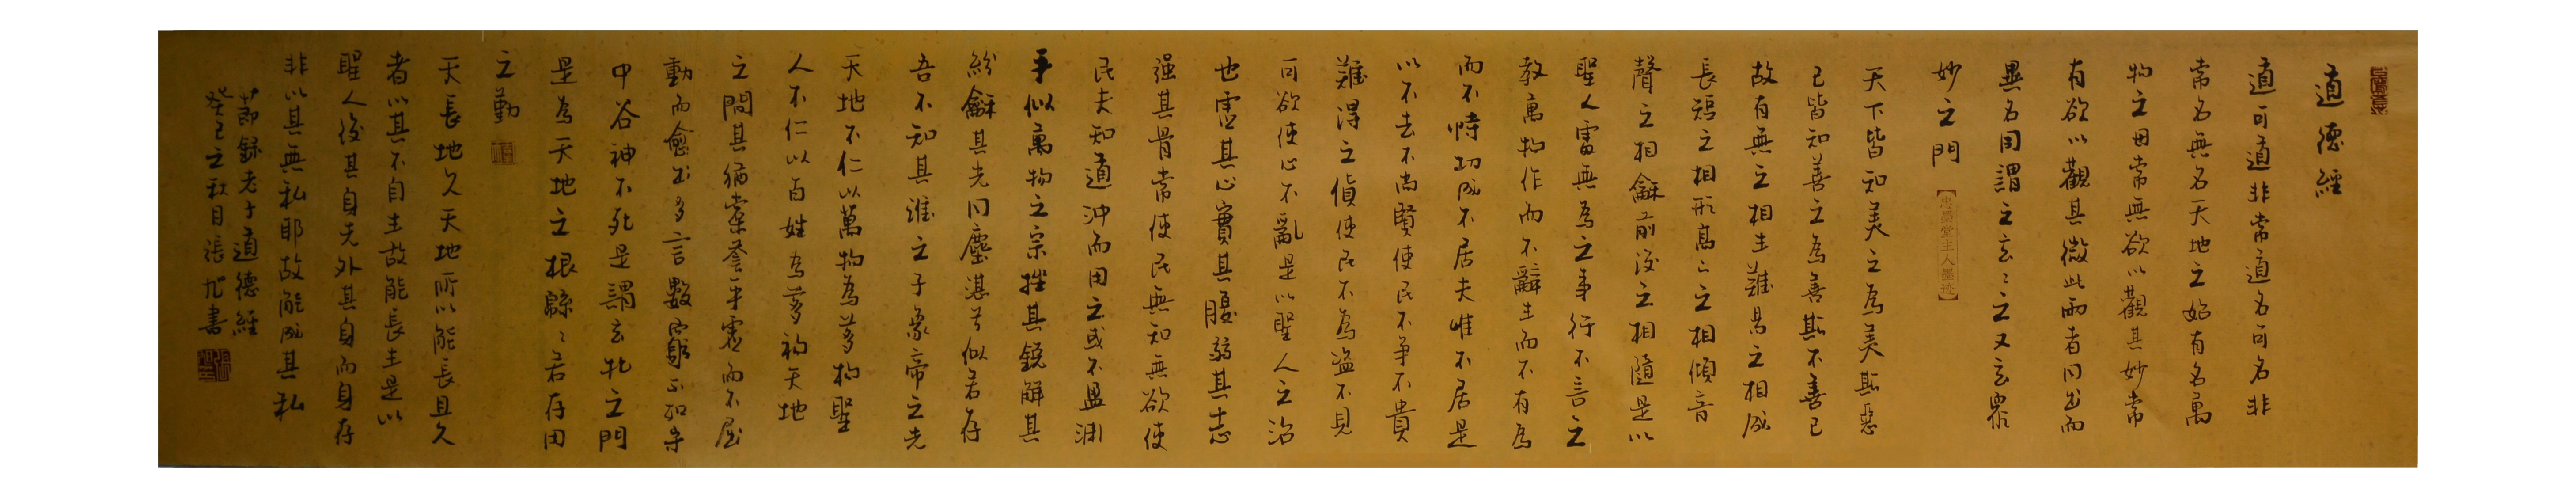 道德經
道可道非常道名可名非
常名無名天地之始有名萬
物之母常無欲以觀其妙常
有欲以觀其微此兩者同出而
異名同謂之玄玄之又玄眾
妙之門
【忠墨堂主人墨迹】
天下皆知美之為美斯惡
已皆知善之為善斯不善已
故有無之相生難易之相成
長短之相形高下之相傾音
聲之相龢前後之相隨是以
聖人處無為之事行不言之
教萬物作而不辭生而不有為
而不恃功成不居夫唯不居是
以不去不尚賢使民不爭不貴
難得之貨使民不為盜不見
可欲使心不亂是以聖人之治
也虛其心實其腹弱其志
强其骨常使民無知無欲使
民夫知道沖而用之或不盈淵
乎似萬物之宗挫其銳解其
紛龢其光同塵湛兮似若存
吾不知其誰之子象帝之先
天地不仁以萬物為芻狗聖
人不仁以百姓為芻狗天地
之間其猶橐籥乎虛而不屈
動而愈出多言數窮不如守
中谷神不死是謂玄牝之門
是為天地之根緜緜若存用
之勤
天長地久天地所以能長且久
者以其不自生故能長生是以
聖人後其身先外其身而身存
非以其無私耶故能成其私
節錄老子道德經
癸巳之秋月張旭書